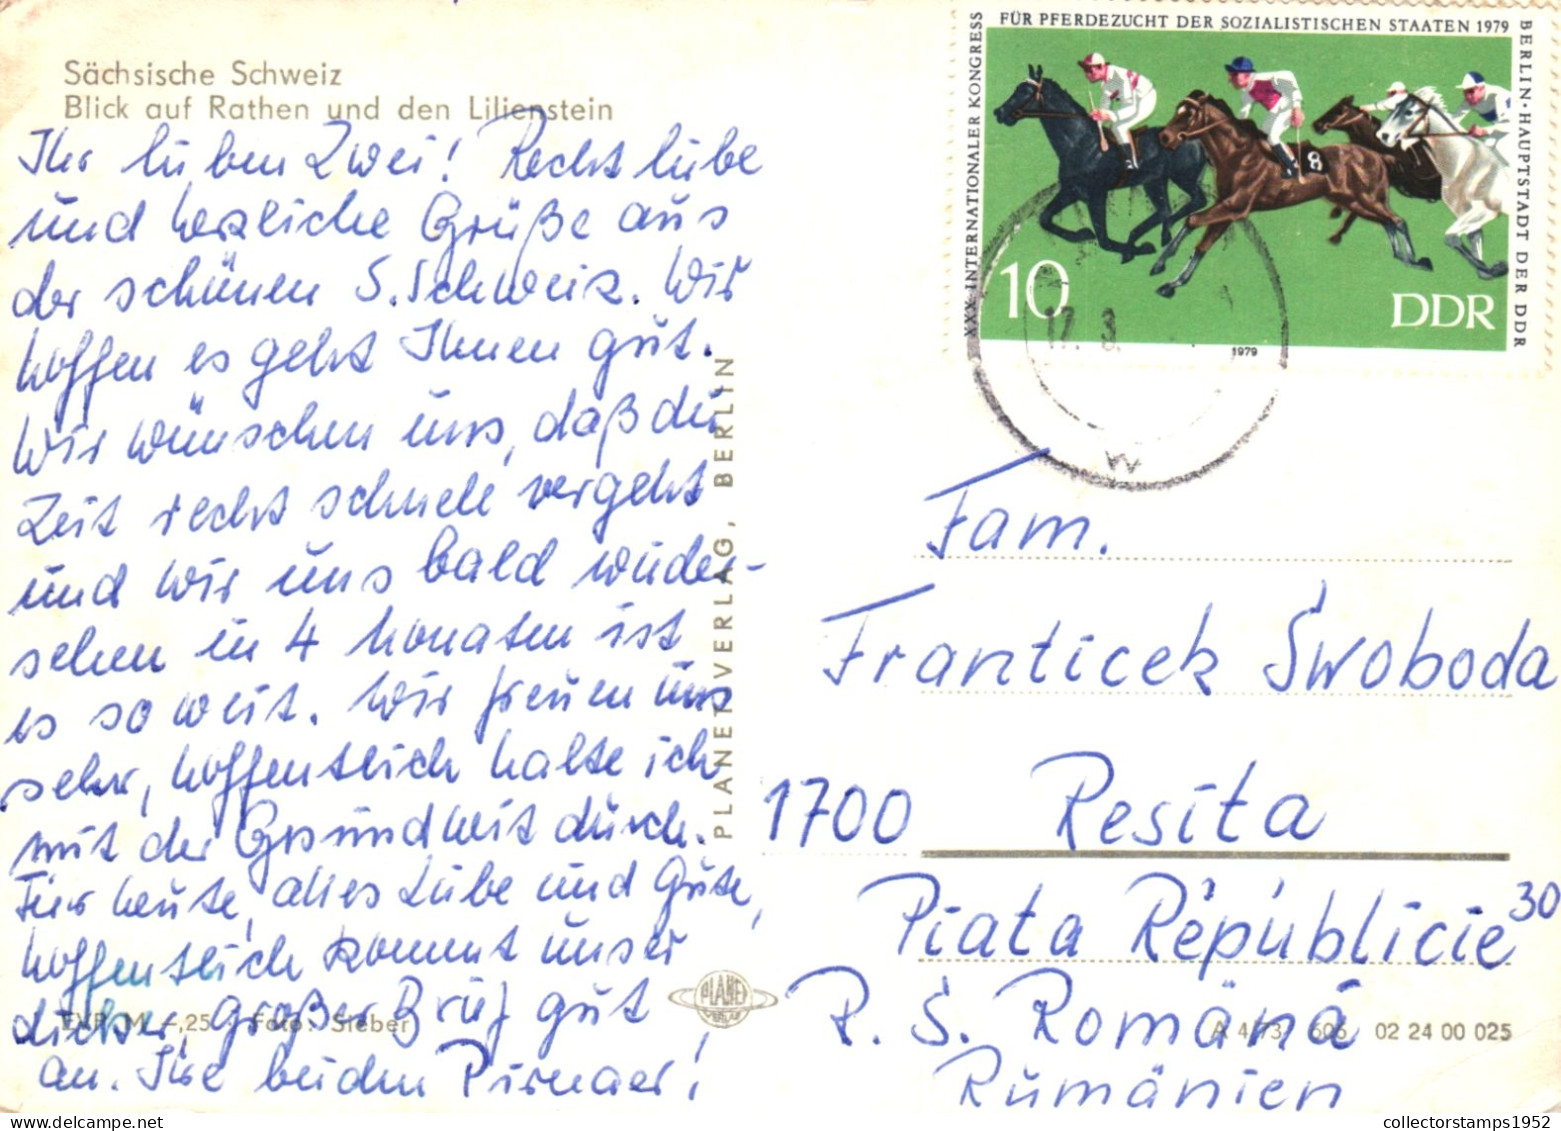 Sächsische Schweiz
Blick auf Rathen und den Lilienstein
Ihr lieben Zwei! Recht liebe
und herzliche Grüße aus
der schönen S. Schweiz. Wir
hoffen es geht Ihnen gut.
Wir wünschen uns, daß die
Zeit recht schnell vergeht
und wir uns bald wieder-
sehen in 4 Monaten ist
es so weit. Wir freuen uns
sehr, hoffentlich halte ich
mit der Gesundheit durch.
Für heute, alles Liebe und Gute,
hoffentlich kommt unser
dicker, großer Brief gut
an. Ihre beiden Pirnaer!
EVP M -,25 · Foto: Sieber
PLANET-VERLAG, BERLIN
PLANET
VERLAG
XXX INTERNATIONALER KONGRESS
FÜR PFERDEZUCHT DER SOZIALISTISCHEN STAATEN 1979
BERLIN·HAUPTSTADT DER DDR
8
10
DDR
1979
17. 8.
w
Fam.
Franticek Swoboda
1700 Resita
Piata Républicie 30
R. S. Română
Rumänien
A 4/73 606 02 24 00 025
collectorstamps1952